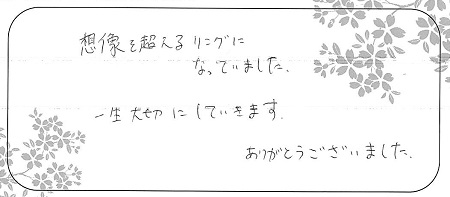 想像を超えるリングに
なっていました.
一生大切にしていきます.
ありがとうございました.